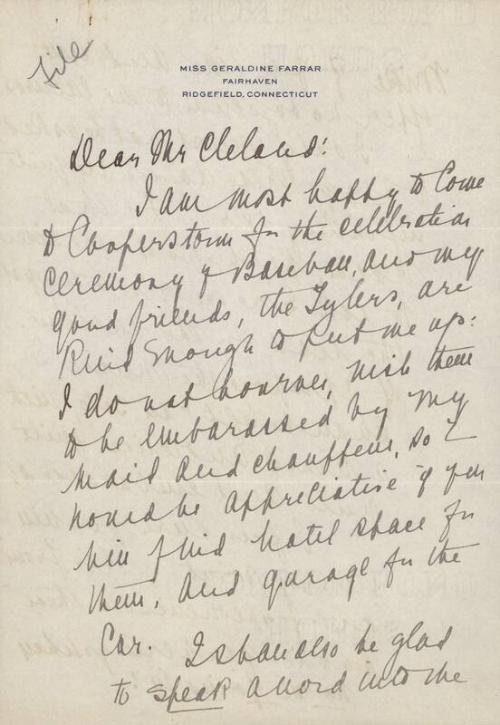 File
MISS GERALDINE FARRAR
FAIRHAVEN
RIDGEFIELD, CONNECTICUT
Dear Mr Cleland:
I am most happy to come
to Cooperstown for the celebration
ceremony of Baseball, and my
good friends, the Tylers, are
kind enough to put me up:
I do not however, wish them
to be embarassed by my
maid and chauffeur, so I
would be appreciative if you
will find hotel space for
them, and garage for the
Car. I shall also be glad
to speak a word into the